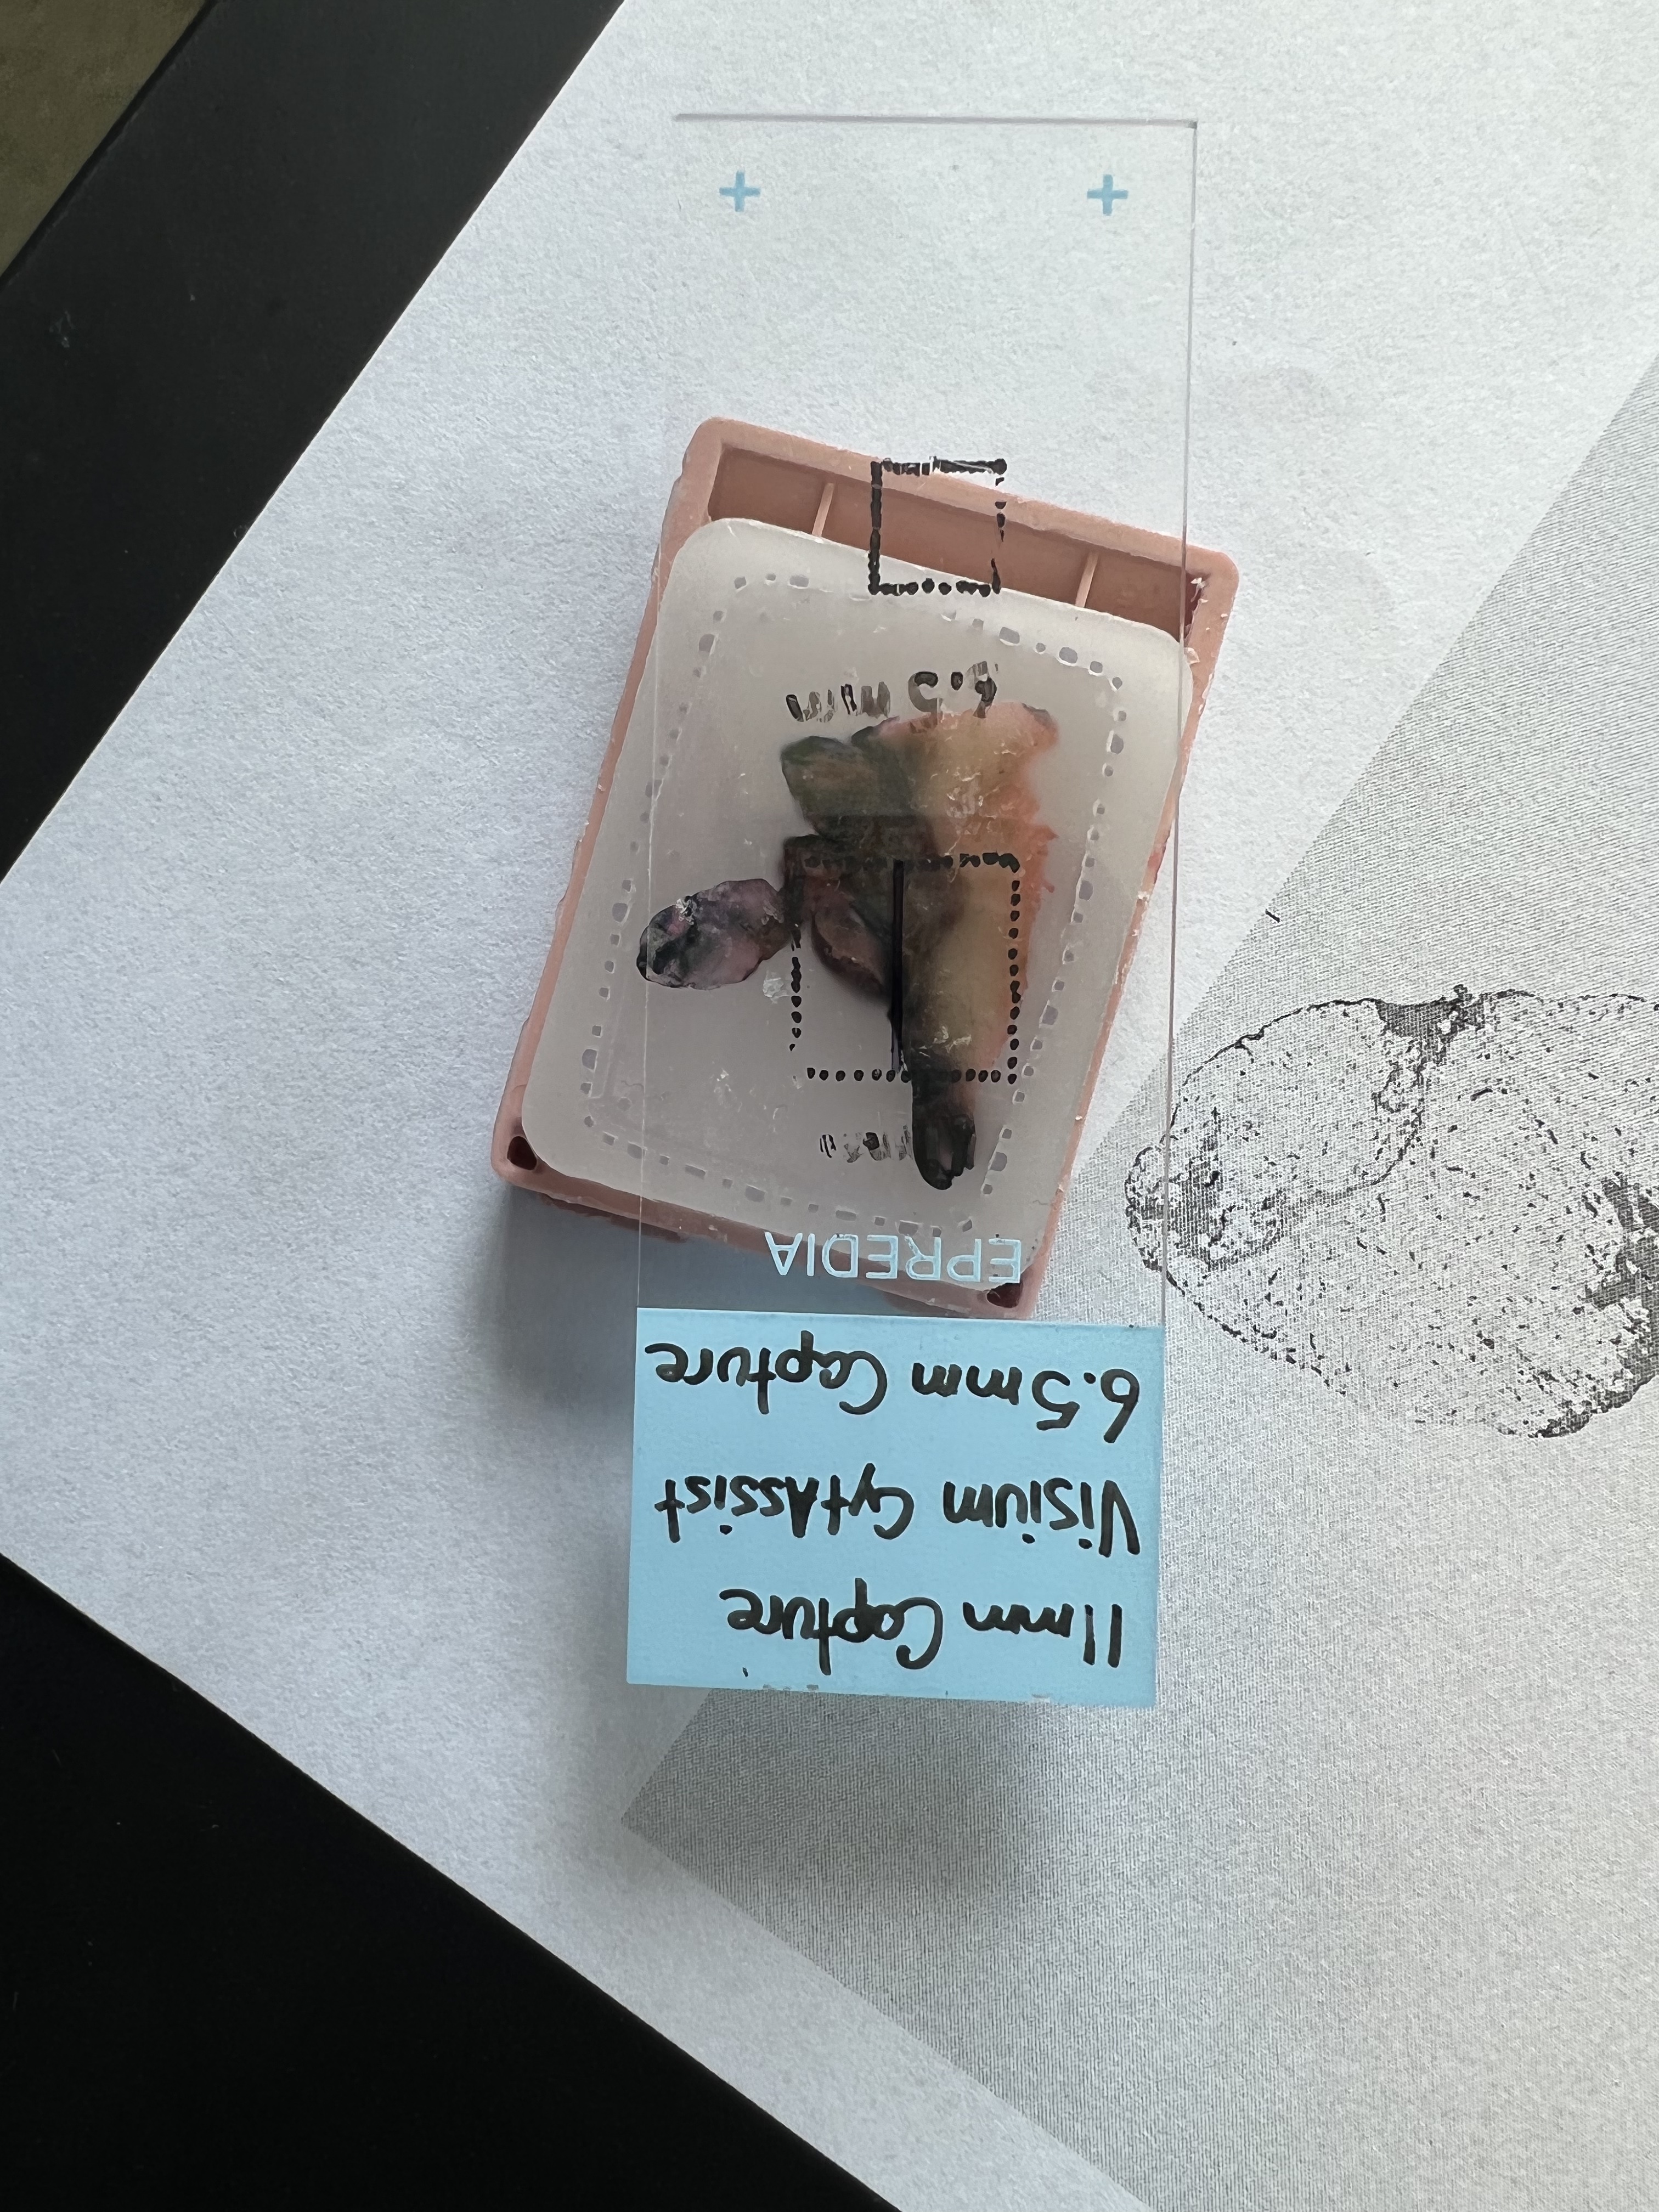 11mm Capture
Visium CytAssist
6.5mm Capture
EPREDIA
6.5 mm